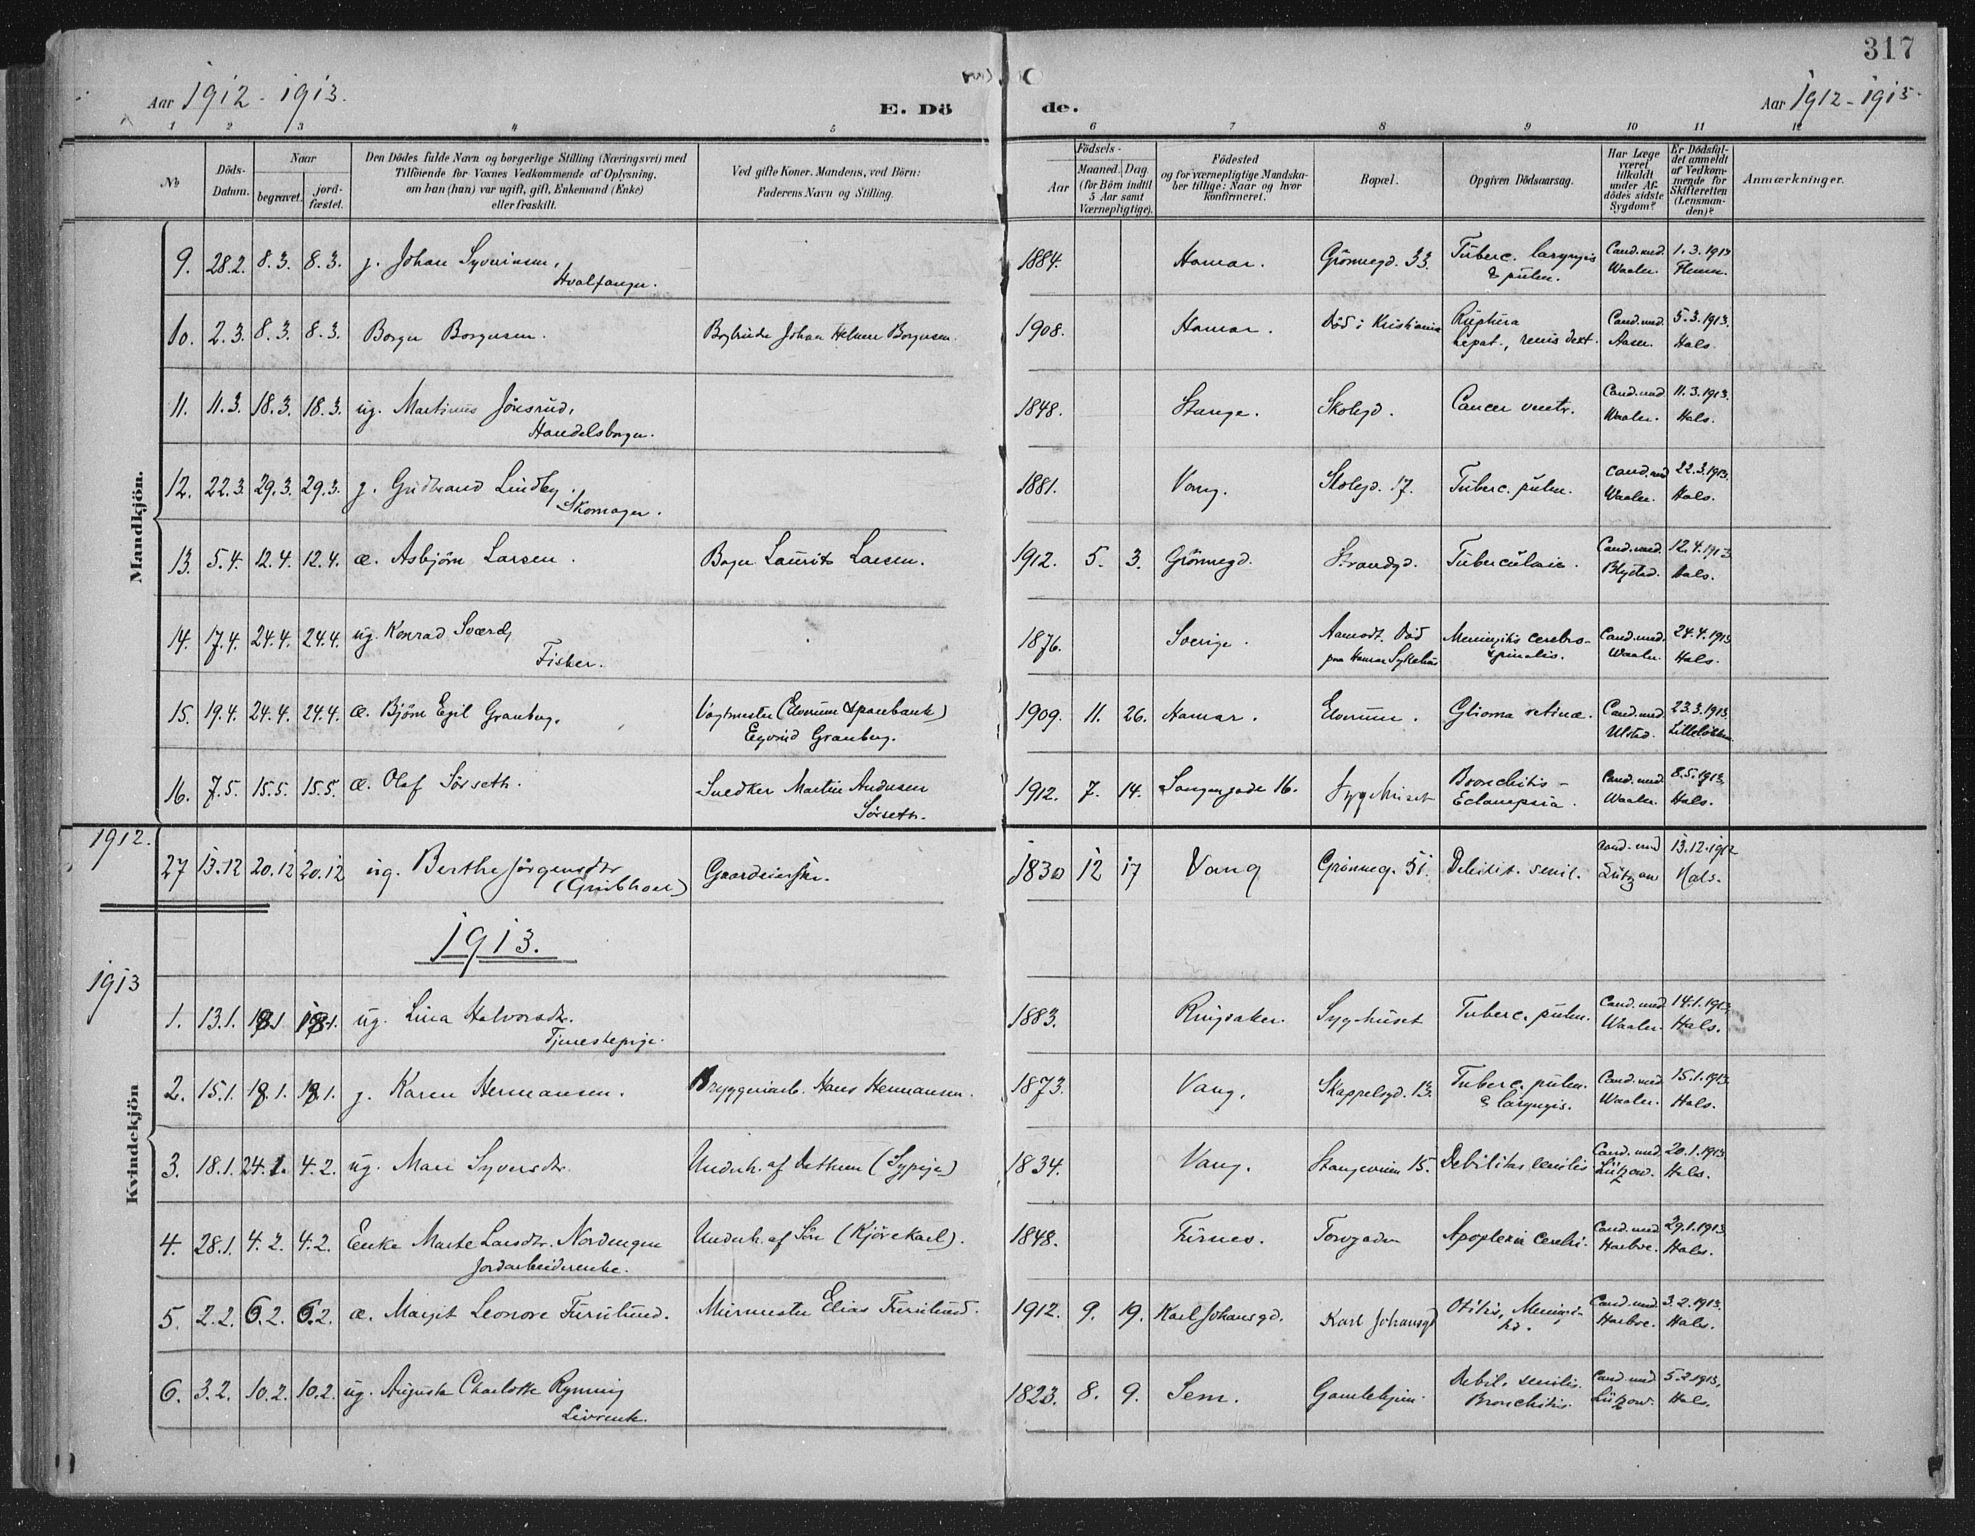 317
Aar 1912 - 1913.
E. Döde.
Aar 1912 - 1913.
1 2 3 4 5 6 7 8 9 10 11 12
No. Döds-Datum. Naar begravet. jordfæstet. Den Dödes fulde Navn og borgerlige Stilling (Næringsvei) med Tilföiende for Voxnes Vedkommende af Oplysning, om han (hun) var ugift, gift, Enkemand (Enke) eller fraskilt. Ved gifte Koner: Mandens, ved Börn: Faderens Navn og Stilling. Födsels- Aar Maaned. Dag (for Börn indtil 5 Aar samt Værnepligtige). Födested og for værnepligtige Mandskaber tillige: Naar og hvor konfirmeret. Bopæl. Opgiven Dödsaarsag. Har Læge været tilkaldt under Afdödes sidste Sygdom? Er Dödsfaldet anmeldt af Vedkommende for Skifteretten (Lensmanden)? Anmærkninger.
Mandkjön.
9. 28.2. 8.3. 8.3. g. Johan Syverinsen, Hvalfanger. 1884. Hamar. Grönnegd. 33. Tuberc. laryngis & pulm. Cand. med. Waaler. 1.3.1913
10. 2.3. 8.3. 8.3. Borger Borgersen. Johan Helmer Borgersen. 1908. Hamar. Död i Kristiania Ruptura hepat., renis dext. Cand. med. Aaser. 5.3.1913. Hals.
11. 11.3. 18.3. 18.3. ug. Martinus Jönsrud, Handelsborger. 1848. Stange. Skolegd. Cancer ventr. Cand. med Waaler. 11.3.1913. Hals.
12. 22.3. 29.3. 29.3. g. Gudbrand Lindby, Skomager. 1881. Vang. Skolegd. 17. Tuberc. pulm. Cand. med Waaler. 22.3.1913. Hals.
13. 5.4. 12.4. 12.4. æ. Asbjörn Larsen. Bager Laurits Larsen. 1912. 5. 3. Grönnegd. Strandgd. Tuberculosis. Cand. med. Blystad. 12.4.1913 Hals.
14. 17.4. 24.4. 24.4. ug. Konrad Sværd, Fisker. 1876. Sverige. Aamodt. Död paa Hamar Sykehus Meningitis cerebro-spinalis. Cand. med. Waaler. 24.4.1913 Hals.
15. 19.4. 24.4. 24.4. æ. Björn Egil Granberg. Vagtmester (Elverum Sparebank) Eyvind Granberg. 1909. 11. 26. Hamar. Elverum. Glioma retinæ. Cand. med Ulstad. 23.3.1913.
16. 7.5. 15.5. 15.5. æ. Olaf Sörseth. Snedker Martin Andersen Sörseth. 1912. 7. 14. Sangengade 16. Sygehuset Bronchitis - Eclampsia. Cand. med Waaler. 8.5.1913. Hals.
1912.
27 13.12 20.12 20.12 ug. Berthe Jörgensdtr. Gaardeierske. 1830 12 17 Vang Grönneg. 51. Debilit. senil. Cand. med Lützow 13.12.1912 Hals.
1913.
1913
Kvindekjön
1. 13.1. 18.1 18.1. ug. Lina Halvorsdtr. Tjenestepige. 1883. Ringsaker. Sygehuset Tuberc. pulm. Cand. med Waaler. 14.1.1913. Hals.
2. 15.1. 18.1. 18.1. g. Karen Hermansen. Bryggeriarb. Hans Hermansen. 1873. Vang. Skappelsgd. 13. Tuberc. pulm. & laryngis. Cand. med Waaler. 15.1.1913. Hals.
3. 18.1. 24.1. 4.2. ug. Mari Syversdtr. Underh. af (Sypige) 1834. Vang. Stangeveien 15. Debilitas senilis Cand. med. Lützow. 20.1.1913 Hals.
4. 28.1. 4.2. 4.2. Enke Marte Larsdtr. Nordengen Jordarbeiderenke. Underh. af Sön (Kjörekarl). 1848. Furnes. Torvgaden Apoplexia cerebri. Cand. med Harboe. 29.1.1913. Hals.
5. 2.2. 6.2. 6.2. æ. Margit Leonore Furulund. Murmester Elias Furulund. 1912. 9. 19. Karl Johansgd. Karl Johansgd Otitis, Meningitis. Cand. med. Harboe. 3.2.1913. Hals.
6. 3.2. 10.2. 10.2. ug. Augusta Charlotte Rynning Livrente. 1823. 8. 9. Sem. Gamlehjem. Debil. senilis. Bronchitis. Cand. med Lützow. 5.2.1913. Hals.